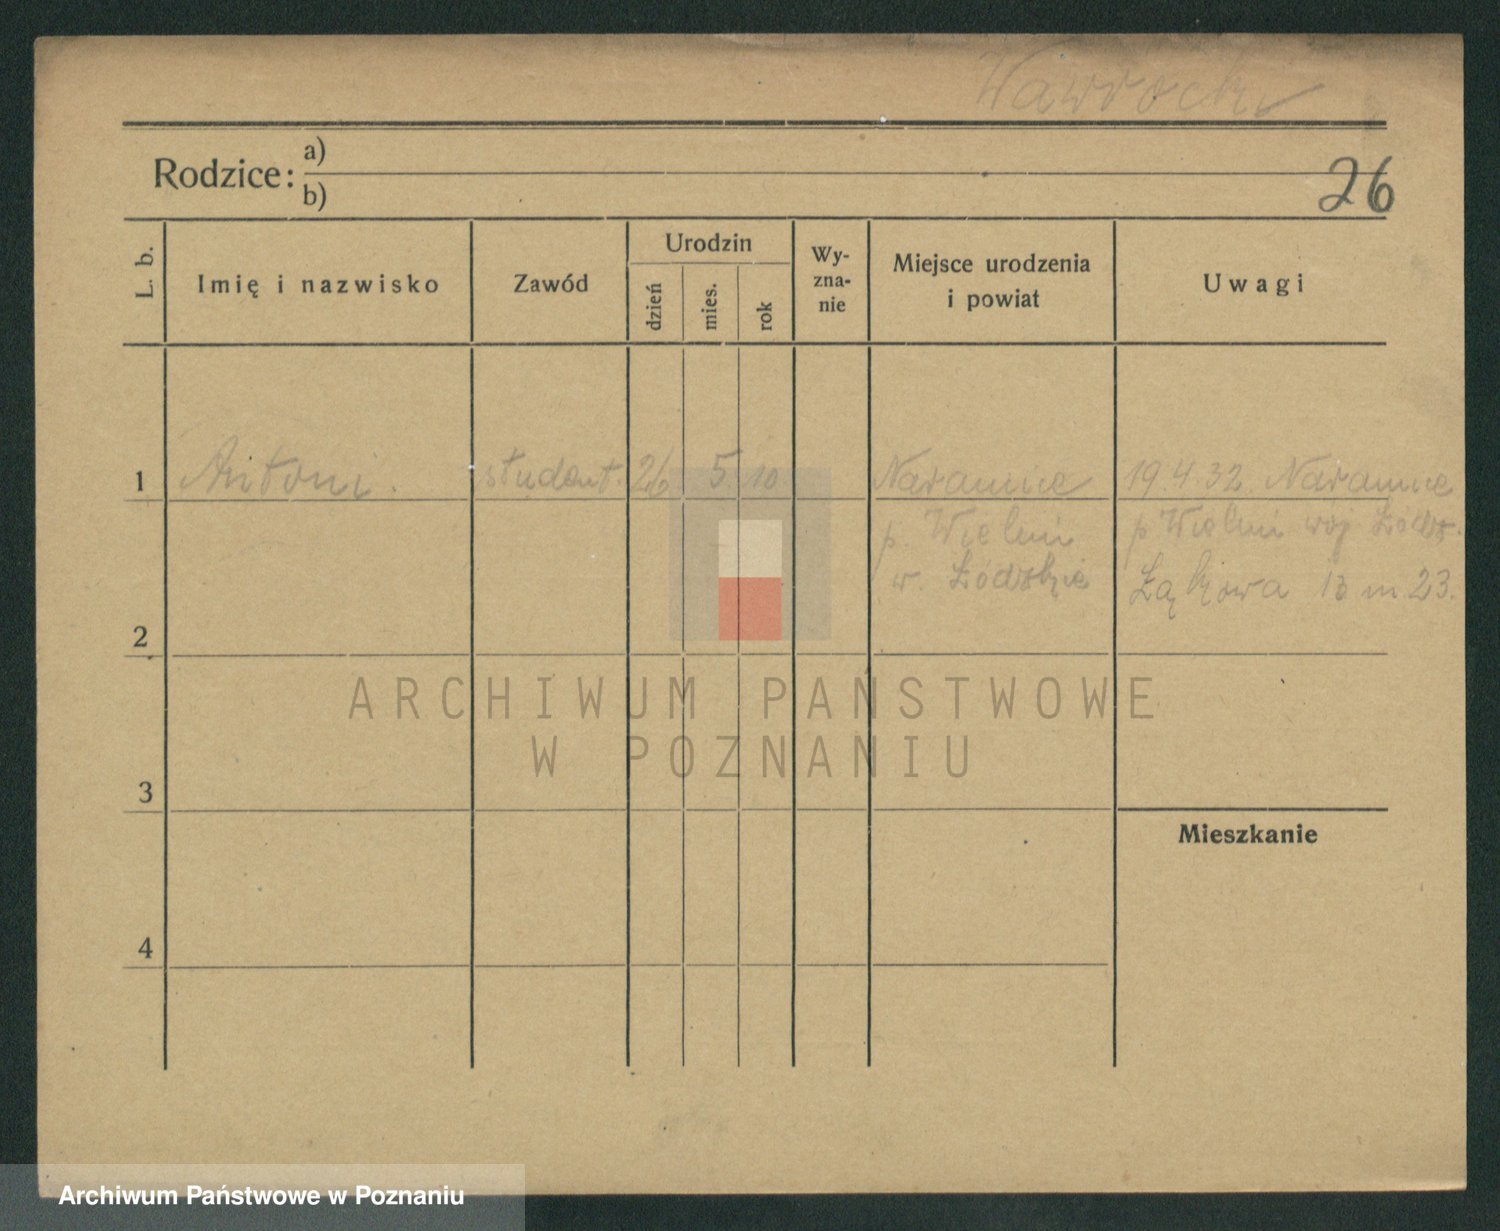 Wawrocki
Rodzice: a)
b)
26
L. b.
Imię i nazwisko
Zawód
Urodzin
dzień
mies.
rok
Wy-
zna-
nie
Miejsce urodzenia
i powiat
Uwagi
1 Antoni. student. 26 5 10 Naramice 19.4 32. Naramice
p. Wieluń p Wieluń woj Łódz.
w. Łódzkie Łąkowa 13 m 23.
2
ARCHIWUM PAŃSTWOWE
W POZNANIU
3
Mieszkanie
4
Archiwum Państwowe w Poznaniu